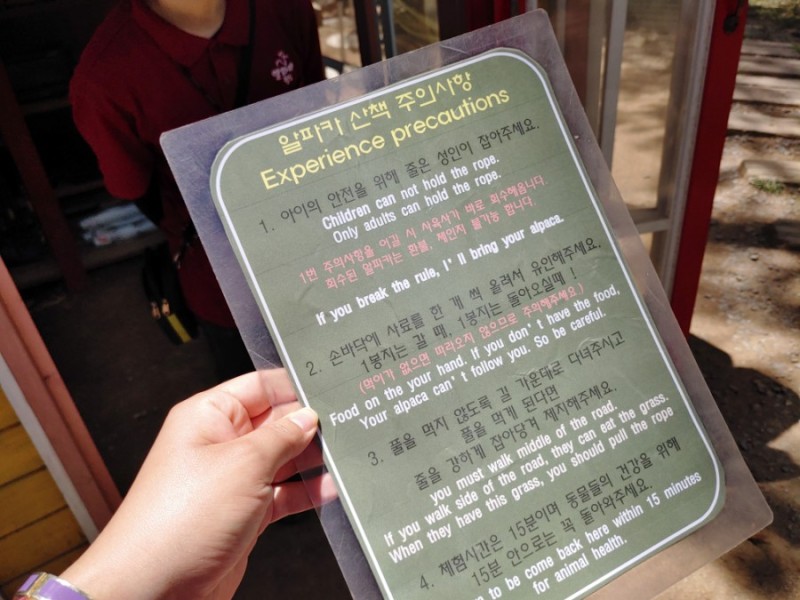 알파카 산책 주의사항
Experience precautions
1. 아이의 안전을 위해 줄은 성인이 잡아주세요.
Children can not hold the rope.
Only adults can hold the rope.
1번 주의사항을 어길 시 사육사가 바로 회수해옵니다.
회수된 알파카는 환불, 체인지 불가능 합니다.
If you break the rule, I'll bring your alpaca.
2. 손바닥에 사료를 한 개 씩 올려서 유인해주세요.
1봉지는 갈 때, 1봉지는 돌아오실때 !
(먹이가 없으면 따라오지 않으므로 주의해주세요)
Food on the your hand. If you don't have the food,
Your alpaca can't follow you. So be careful.
3. 풀을 먹지 않도록 길 가운데로 다녀주시고
풀을 먹게 된다면
줄을 강하게 잡아당겨 제지해주세요.
you must walk middle of the road.
If you walk side of the road, they can eat the grass.
When they have this grass, you should pull the rope
4. 체험시간은 15분이며 동물들의 건강을 위해
15분 안으로는 꼭 돌아와주세요.
to be come back here within 15 minutes
for animal health.